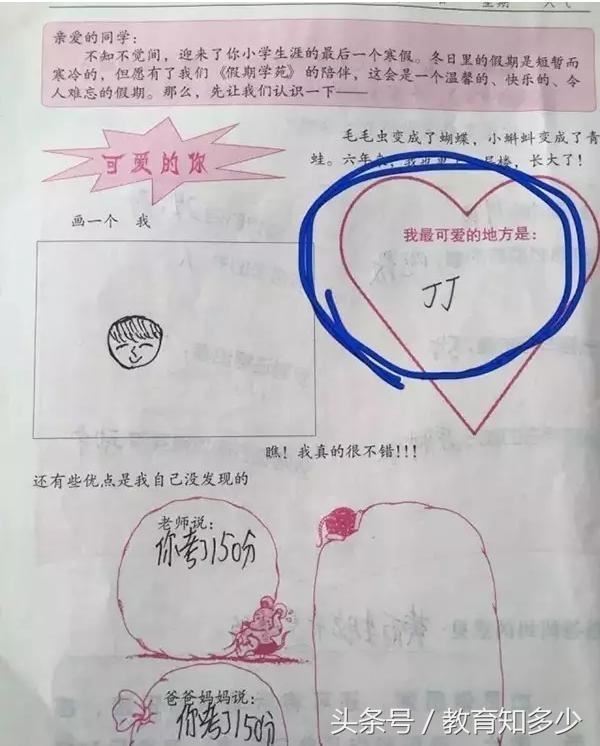 亲爱的同学:
不知不觉间，迎来了你小学生涯的最后一个寒假。冬日里的假期是短暂而
寒冷的，但愿有了我们《假期学苑》的陪伴，这会是一个温馨的、快乐的、令
人难忘的假期。那么，先让我们认识一下——
可爱的你
毛毛虫变成了蝴蝶，小蝌蚪变成了青
蛙。六年来，长大了!
画一个 我
我最可爱的地方是:
JJ
瞧！我真的很不错!!!
还有些优点是我自己没发现的
老师说:
你考了150分
爸爸妈妈说:
你考了150分
头条号 / 教育知多少